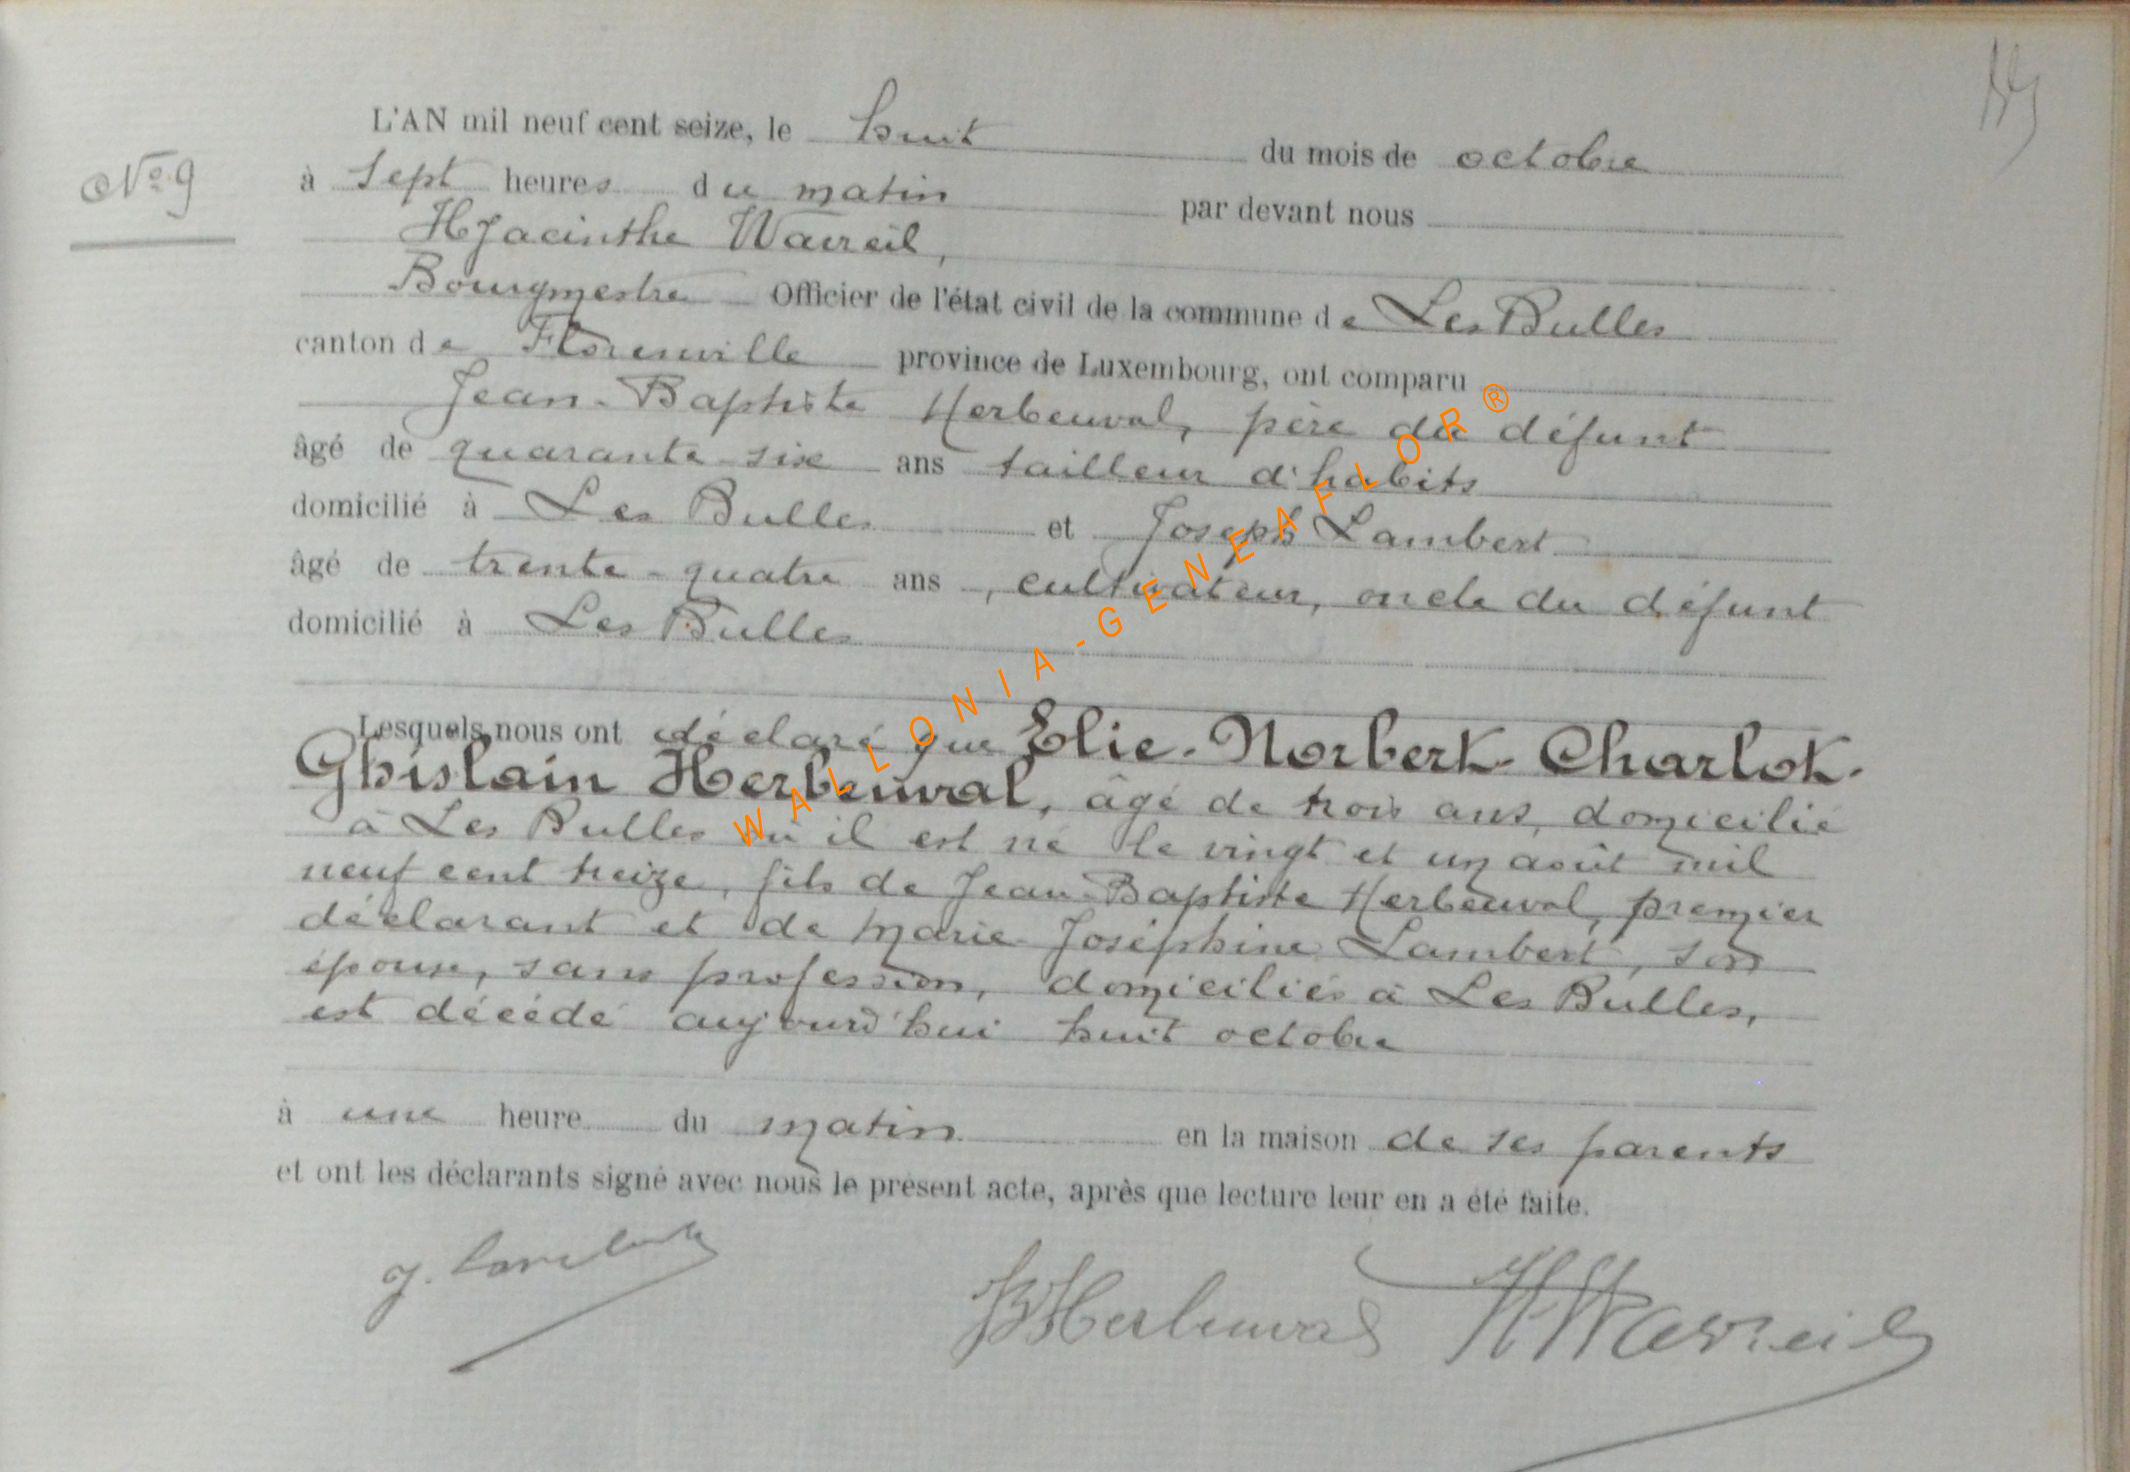 L'AN mil neuf cent seize, le huit du mois de octobre
No 9
à sept heures du matin par devant nous
Hyacinthe Wavreil,
Bourgmestre Officier de l'état civil de la commune de Les Bulles
canton de Florenville province de Luxembourg, ont comparu
Jean-Baptiste Herbeuval, père du défunt
âgé de quarante-six ans tailleur d'habits
domicilié à Les Bulles et Joseph Lambert
âgé de trente-quatre ans, cultivateur, oncle du défunt
domicilié à Les Bulles
Lesquels nous ont déclaré que Elie-Norbert-Charlot-
Ghislain Herbeuval, âgé de trois ans, domicilié
à Les Bulles où il est né le vingt et un août mil
neuf cent treize, fils de Jean-Baptiste Herbeuval, premier
déclarant et de Marie-Joséphine Lambert, son
épouse, sans profession, domiciliés à Les Bulles,
est décédé aujourd'hui huit octobre
à une heure du matin en la maison de ses parents
et ont les déclarants signé avec nous le présent acte, après que lecture leur en a été faite.
J. Lambert JBHerbeuval HWavreil
WALLONIA-GENEAFLOR®